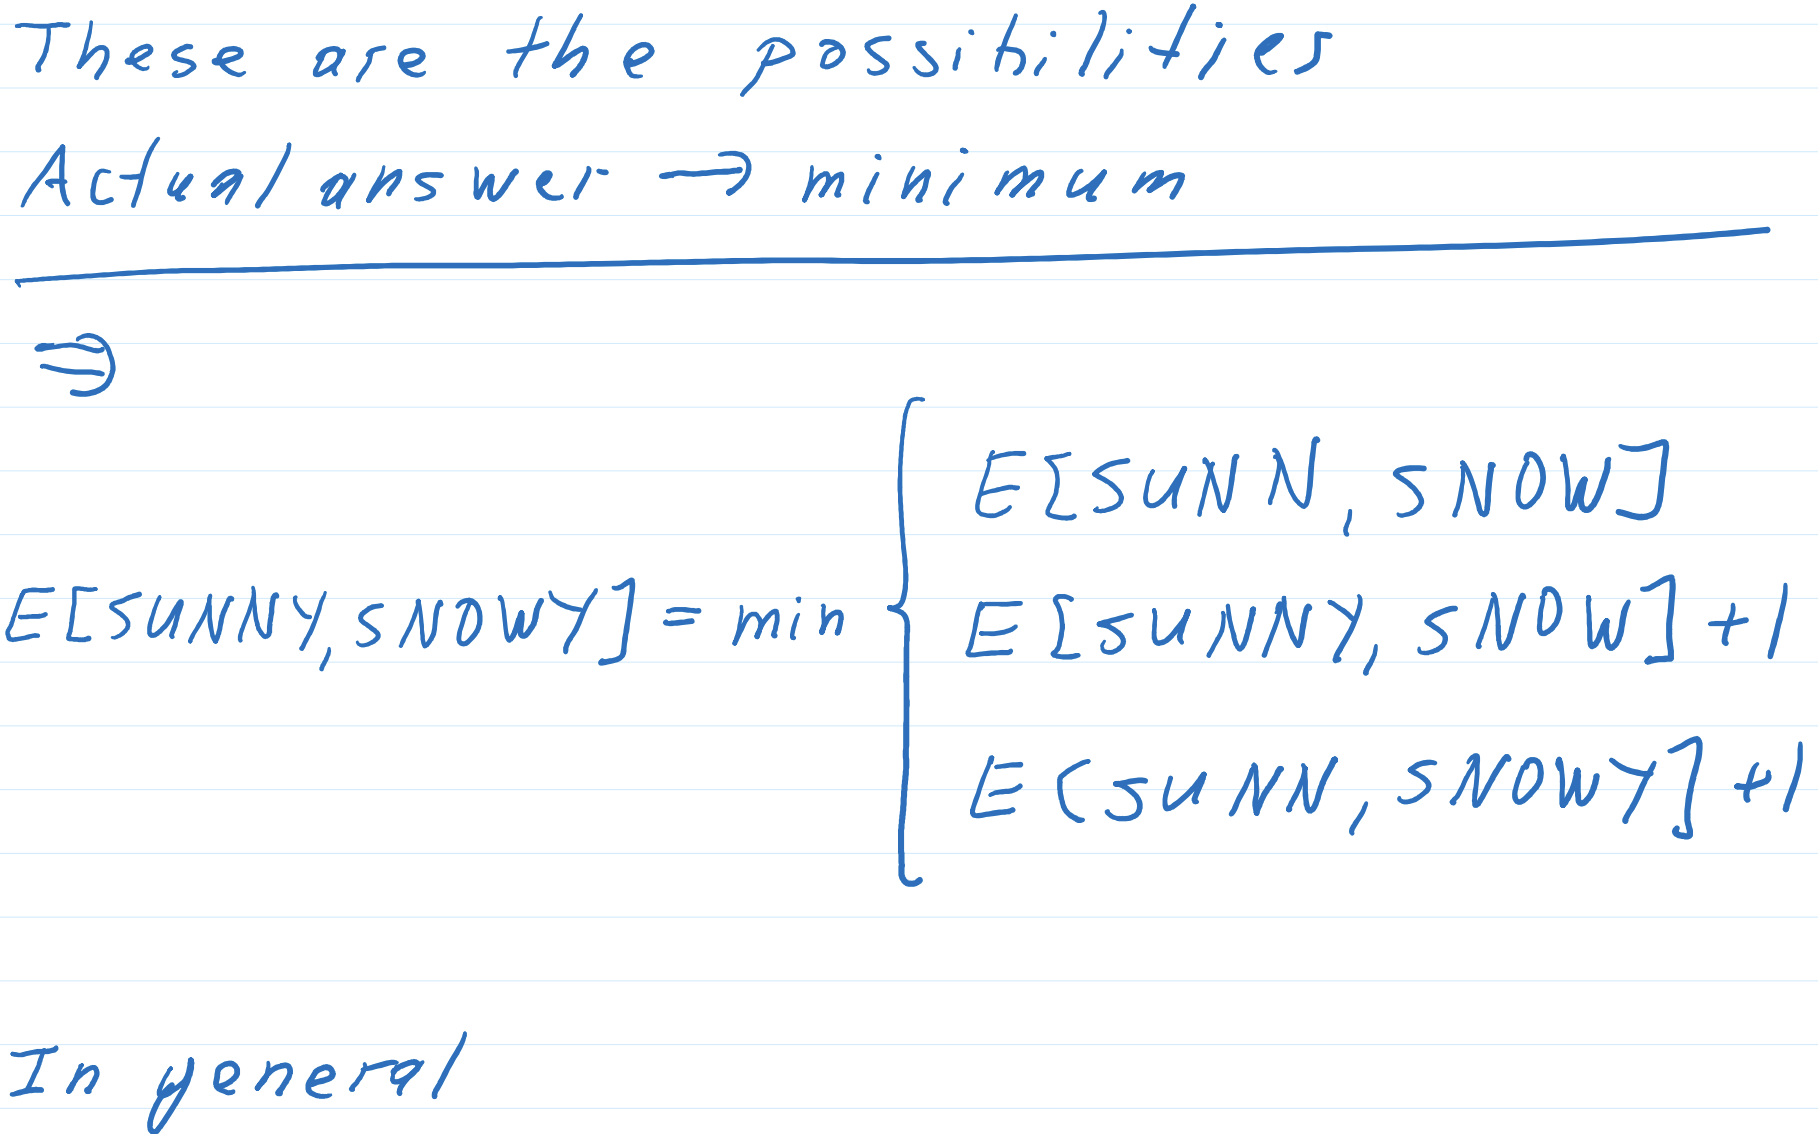 These are the possibilities
Actual answer → minimum
⇒
E[SUNN, SNOW]
E[SUNNY, SNOWY] = min { E[SUNNY, SNOW] + 1
E(SUNN, SNOWY] + 1
In general